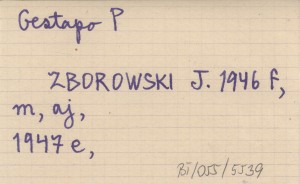 Gestapo P
ZBOROWSKI J. 1946 f,
m, aj,
1947 e,
BI/055/5539